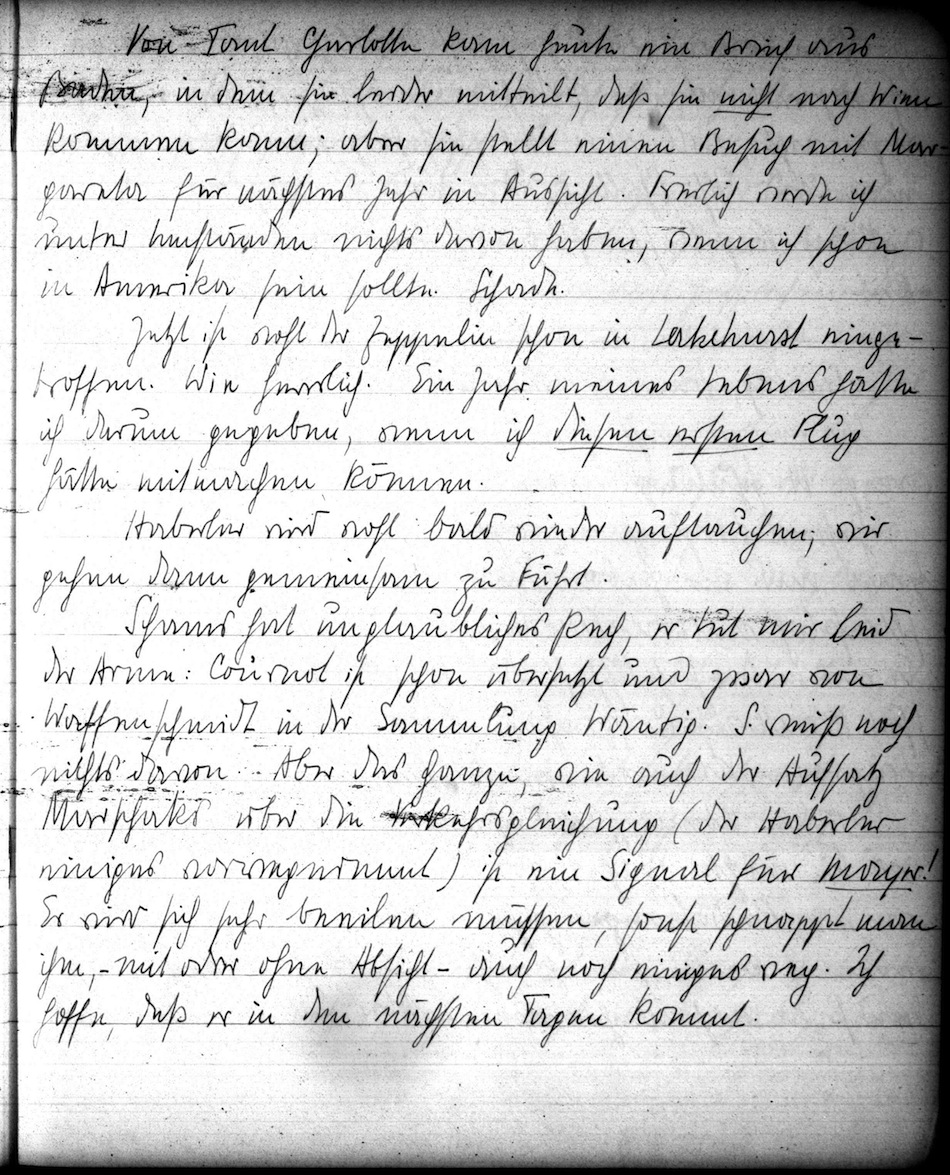 Von Tant Charlotte kam heute ein Brief aus
Baden, in dem sie leider mitteilt, daß sie nicht nach Wien
kommen kann; aber sie stellt einen Besuch mit Mar-
gareta für nächstes Jahr in Aussicht. Freilich werde ich
unter Umständen nichts davon haben, wenn ich schon
in Amerika sein sollte. Schade.
Jetzt ist wohl der Zeppelin schon in Lakehurst einge-
troffen. Wie herrlich. Ein Jahr meines Lebens hätte
ich darum gegeben, wenn ich diesen ersten Flug
hätte mitmachen können.
Haberler wird wohl bald wieder auftauchen; wir
gehen dann gemeinsam zu Fürt.
Schams hat unglaubliches Pech, er tut mir leid
der Arme: Cournot ist schon übersetzt und zwar von
Waffenschmidt in der Sammlung Wäntig. S. weiß noch
nichts davon. Aber das ganze, wie auch der Aufsatz
Marschaks über die Verkehrsgleichung (der Haberler
einiges vorwegnimmt) ist ein Signal für Mayer!
Er wird sich sehr beeilen müssen, sonst schnappt man
ihm, - mit oder ohne Absicht - auch noch einiges weg. Ich
hoffe, daß er in den nächsten Tagen kommt.